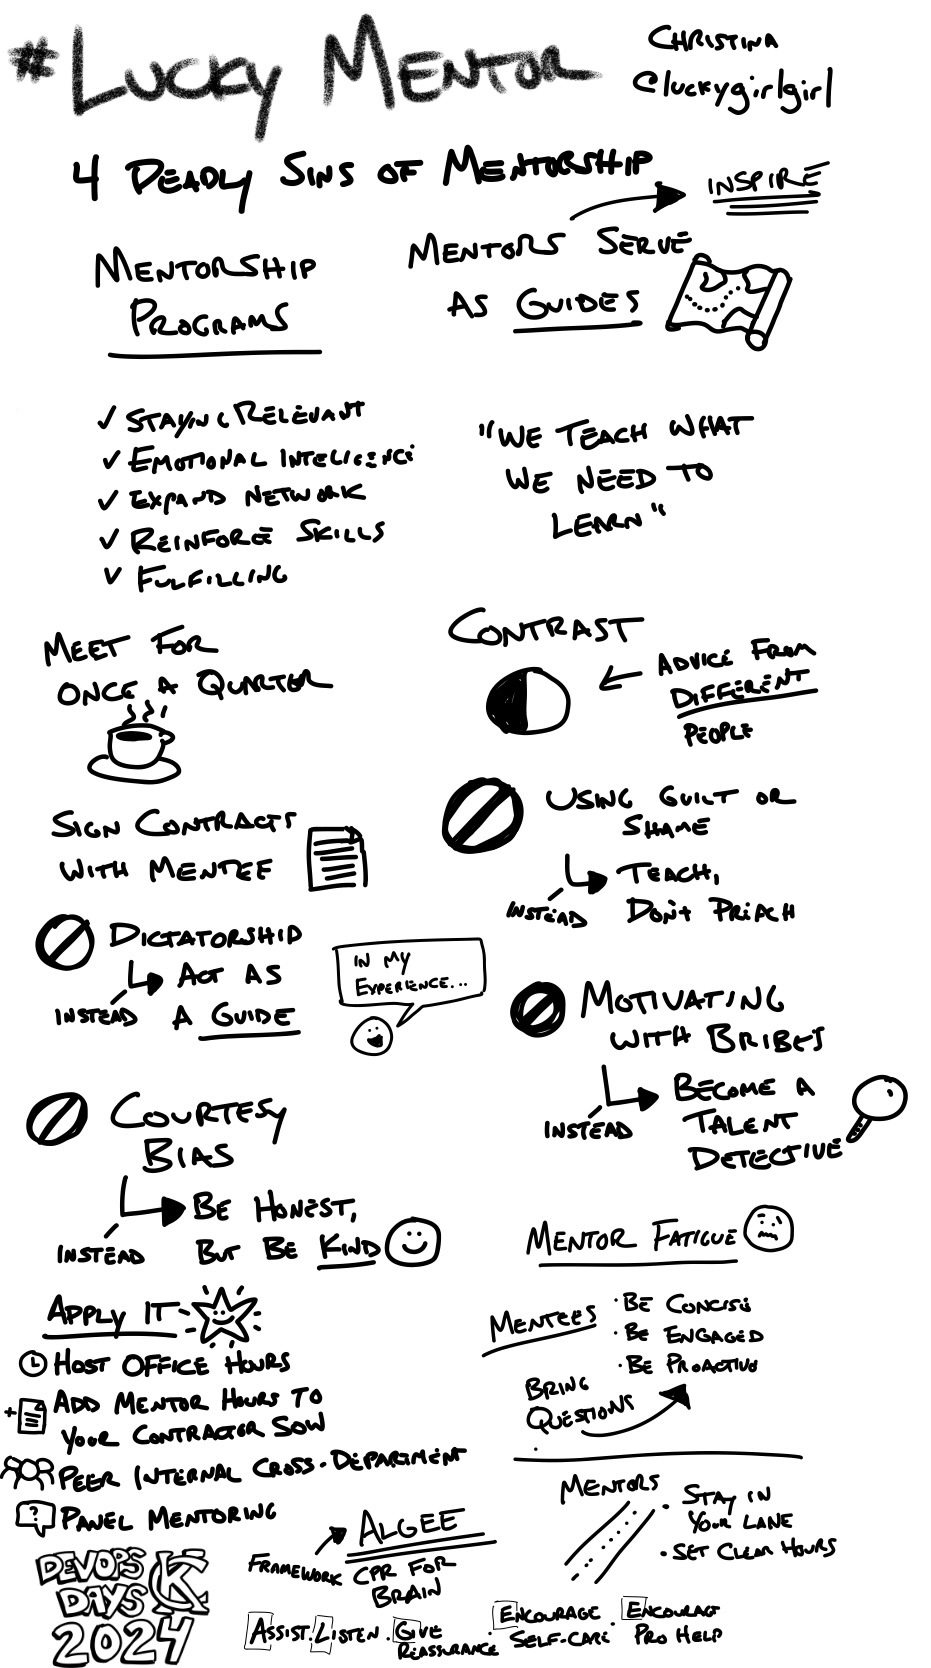 #LUCKY MENTOR
CHRISTINA
@luckygirlgirl
4 DEADLY SINS OF MENTORSHIP
MENTORSHIP
PROGRAMS
MENTORS SERVE
AS GUIDES
INSPIRE
✓ STAYING RELEVANT
✓ EMOTIONAL INTELIGENCE
✓ EXPAND NETWORK
✓ REINFORCE SKILLS
✓ FULFILLING
"WE TEACH WHAT
WE NEED TO
LEARN"
MEET FOR
ONCE A QUARTER
CONTRAST
ADVICE FROM
DIFFERENT
PEOPLE
SIGN CONTRACTS
WITH MENTEE
USING GUILT OR
SHAME
INSTEAD
TEACH,
DON'T PREACH
DICTATORSHIP
INSTEAD
ACT AS
A GUIDE
IN MY
EXPERIENCE...
MOTIVATING
WITH BRIBES
INSTEAD
BECOME A
TALENT
DETECTIVE
COURTESY
BIAS
INSTEAD
BE HONEST,
BUT BE KIND
MENTOR FATIGUE
MENTEES
· BE CONCISE
· BE ENGAGED
· BE PROACTIVE
BRING
QUESTIONS
APPLY IT
HOST OFFICE HOURS
+ ADD MENTOR HOURS TO
YOUR CONTRACTOR SOW
PEER INTERNAL CROSS-DEPARTMENT
? PANEL MENTORING
MENTORS
· STAY IN
YOUR LANE
· SET CLEAR HOURS
FRAMEWORK
ALGEE
CPR FOR
BRAIN
ASSIST. LISTEN. GIVE
REASSURANCE
· ENCOURAGE
SELF-CARE
· ENCOURAGE
PRO HELP
DEVOPS
DAYS KC
2024